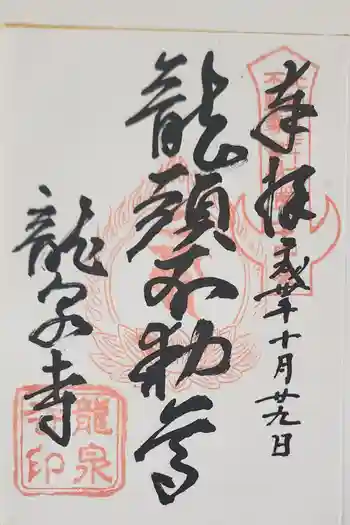 奉拝
平成卅年十月廿九日
龍頭不動尊
龍泉寺
龍泉
寺印